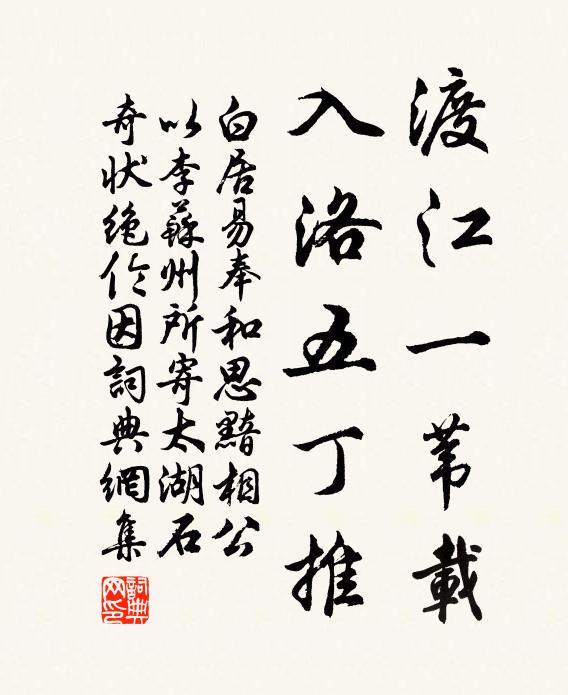 渡江一苇載
入洛五丁推
白居易奉和思黯相公
以李蘇州所寄太湖石
奇状絶伦因詞典網集
詞典网印